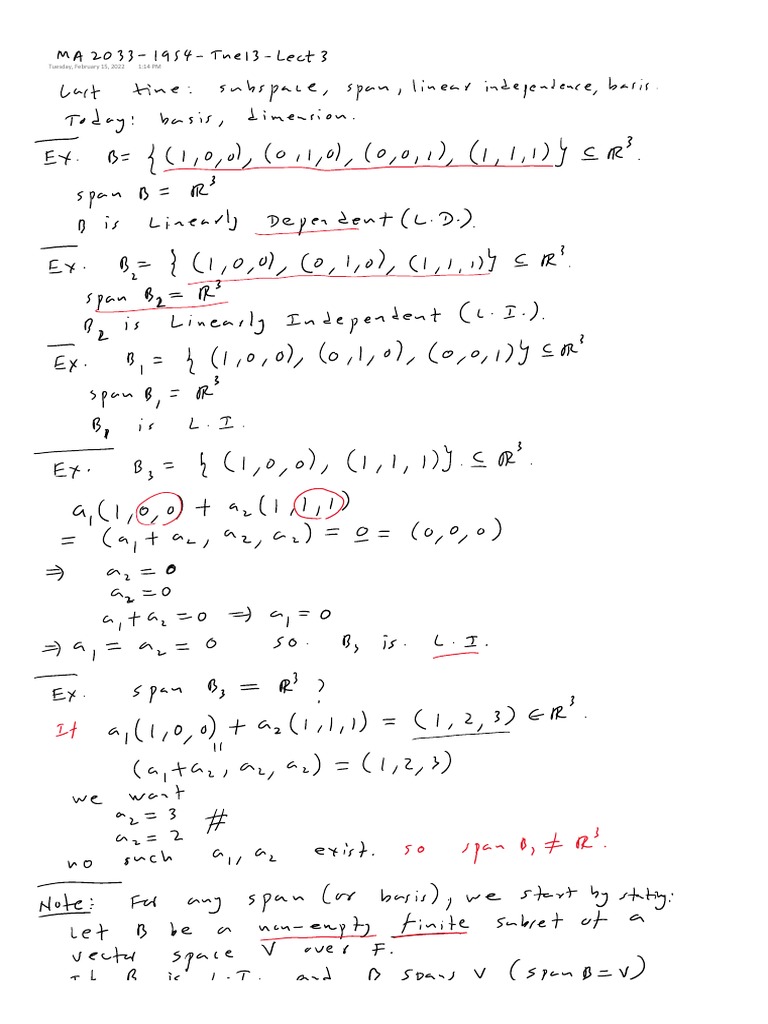 MA2033-1954-Tue13-Lect3
Tuesday, February 15, 2022 1:14 PM
Last time: subspace, span, linear independence, basis.
Today: basis, dimension.
Ex. B= {(1,0,0), (0,1,0), (0,0,1), (1,1,1)} ⊆ ℝ³.
span B = ℝ³
B is Linearly Dependent (L.D.).
Ex. B₂= {(1,0,0), (0,1,0), (1,1,1)} ⊆ ℝ³.
span B₂ = ℝ³
B₂ is Linearly Independent (L.I.).
Ex. B₁ = {(1,0,0), (0,1,0), (0,0,1)} ⊆ ℝ³
span B₁ = ℝ³
B₁ is L.I.
Ex. B₃ = {(1,0,0), (1,1,1)}. ⊆ ℝ³.
a₁(1,0,0) + a₂(1,1,1)
= (a₁+a₂, a₂, a₂) = 0 = (0,0,0)
⇒ a₂ = 0
a₂ = 0
a₁+a₂=0 ⇒ a₁=0
⇒ a₁ = a₂ = 0 so. B₃ is. L.I.
Ex. span B₃ = ℝ³ ?
If a₁(1,0,0) + a₂(1,1,1) = (1,2,3) ∈ ℝ³.
||
(a₁+a₂, a₂, a₂) = (1,2,3)
we want
a₂ = 3
a₂ = 2 #
no such a₁, a₂ exist. so span B₃ ≠ ℝ³.
Note: For any span (or basis), we start by stating:
Let B be a non-empty finite subset of a
vector space V over F.
B is L.I. and B spans V (span B = V)